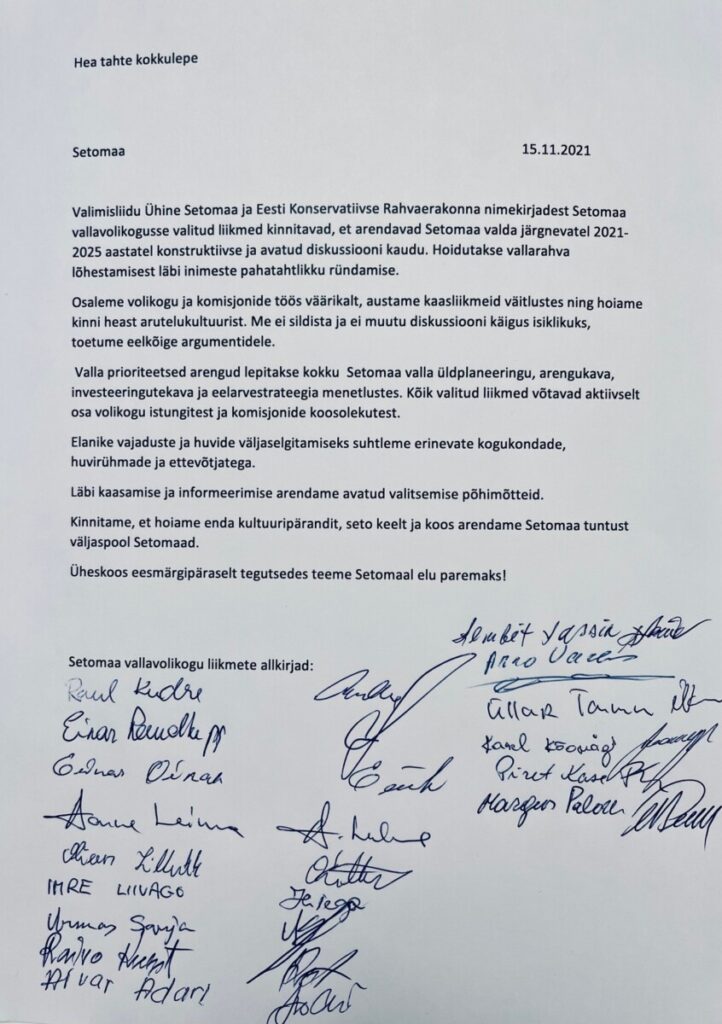 Hea tahte kokkulepe
Setomaa 15.11.2021
Valimisliidu Ühine Setomaa ja Eesti Konservatiivse Rahvaerakonna nimekirjadest Setomaa
vallavolikogusse valitud liikmed kinnitavad, et arendavad Setomaa valda järgnevatel 2021-
2025 aastatel konstruktiivse ja avatud diskussiooni kaudu. Hoidutakse vallarahva
lõhestamisest läbi inimeste pahatahtlikku ründamise.
Osaleme volikogu ja komisjonide töös väärikalt, austame kaasliikmeid väitlustes ning hoiame
kinni heast arutelukultuurist. Me ei sildista ja ei muutu diskussiooni käigus isiklikuks,
toetume eelkõige argumentidele.
Valla prioriteetsed arengud lepitakse kokku Setomaa valla üldplaneeringu, arengukava,
investeeringutekava ja eelarvestrateegia menetlustes. Kõik valitud liikmed võtavad aktiivselt
osa volikogu istungitest ja komisjonide koosolekutest.
Elanike vajaduste ja huvide väljaselgitamiseks suhtleme erinevate kogukondade,
huvirühmade ja ettevõtjatega.
Läbi kaasamise ja informeerimise arendame avatud valitsemise põhimõtteid.
Kinnitame, et hoiame enda kultuuripärandit, seto keelt ja koos arendame Setomaa tuntust
väljaspool Setomaad.
Üheskoos eesmärgipäraselt tegutsedes teeme Setomaal elu paremaks!
Setomaa vallavolikogu liikmete allkirjad:
Raul Kudre
Einar
IMRE LIIVAGO
Urmas Sarja
Raivo
Alvar Adari
A. Leima
Arno
Üllar Tamm
Karel Kõomägi
Piret Kase
Margus Palou